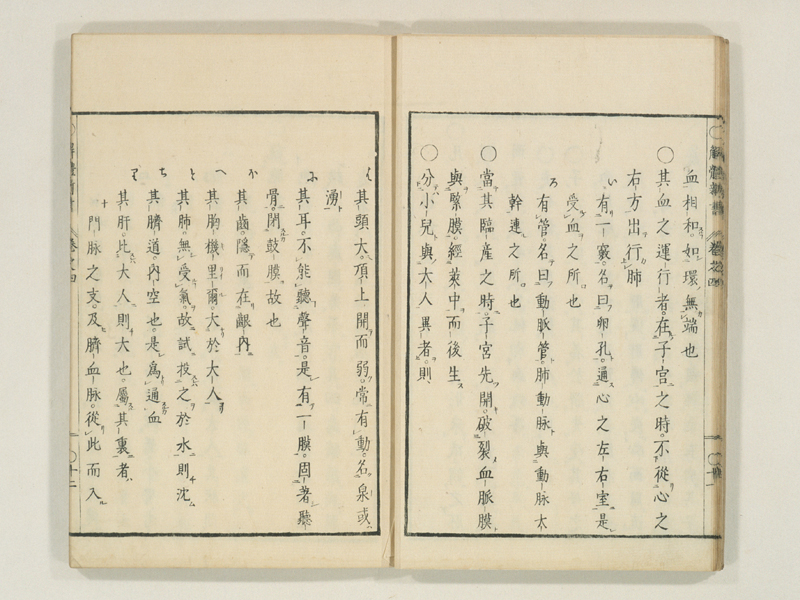 血相和如環無端也
〇其血之運行者在子宮之時不從心之
右方出行肺
い有一竅名曰卵孔通心之左右室是
受血之所也
ろ有管名曰動脈管肺動脈與動脈太
幹連之所也
〇當其臨産之時子宮先開破裂血脈膜
與緊膜經莢中而後生
〇分小兒與大人異者則
は其頭大項上開而弱常有動名泉或
湧
に其耳不能聽聲音是有一膜固著聽
骨閉鼓膜故也
ほ其齒隱而在齦內
へ其胸機里爾大於大人
と其肺無受氣故試投之於水則沈
ち其臍道內空也是爲通血
り其肝比大人則大也屬其裏者
門脈之支及臍血脈從此而入
卷之四
十二